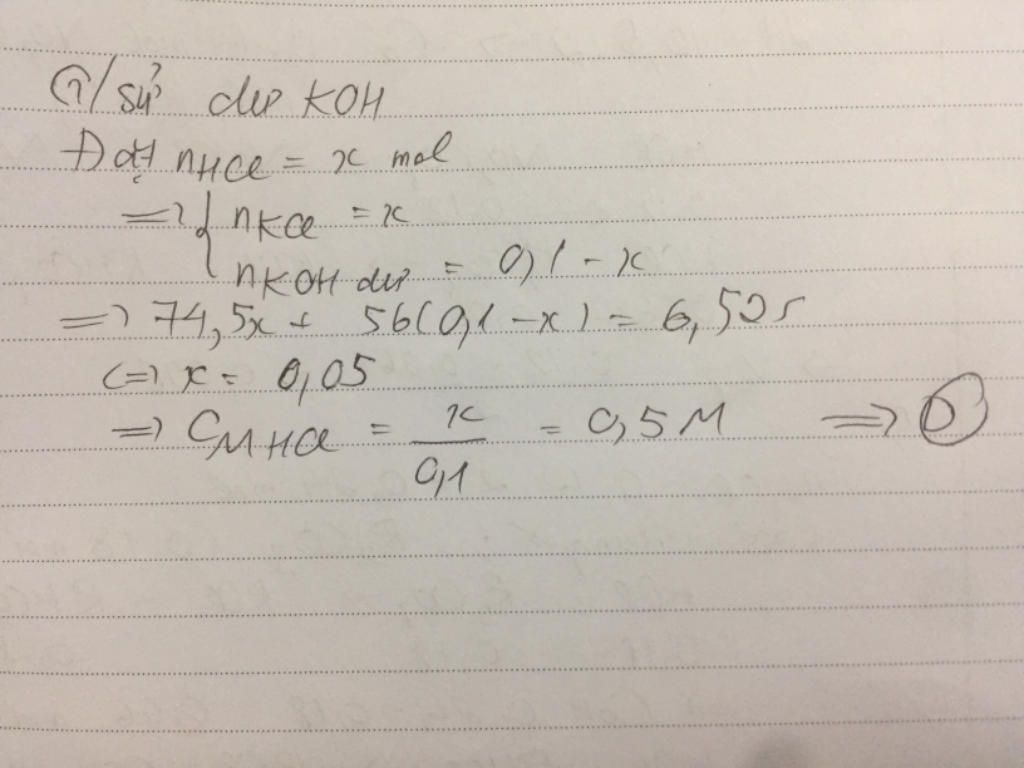 G/sử dư KOH
Đặt nHCl = x mol
=> { nKCl = x
nKOH dư = 0,1 - x
=> 74,5x + 56(0,1 - x) = 6,525
<=> x = 0,05
=> CM HCl = x / 0,1 = 0,5M => D